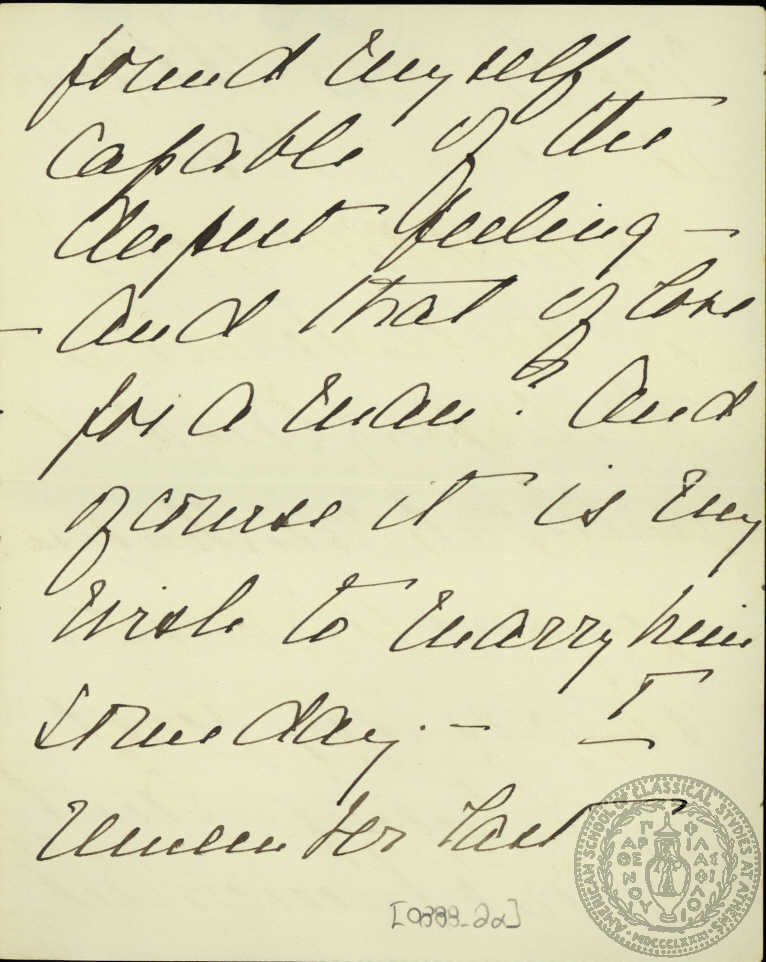 found myself
capable of the
deepest feeling —
— And that of love
for a man? And
of course it is my
wish to marry him
some day. — I
remember last
[0333_2α]
AMERICAN SCHOOL OF CLASSICAL STUDIES AT ATHENS
ΠΑΡΘΕΝΟΥ ΦΙΛΑΣ ΦΙΛΟΙ
MDCCCLXXXI